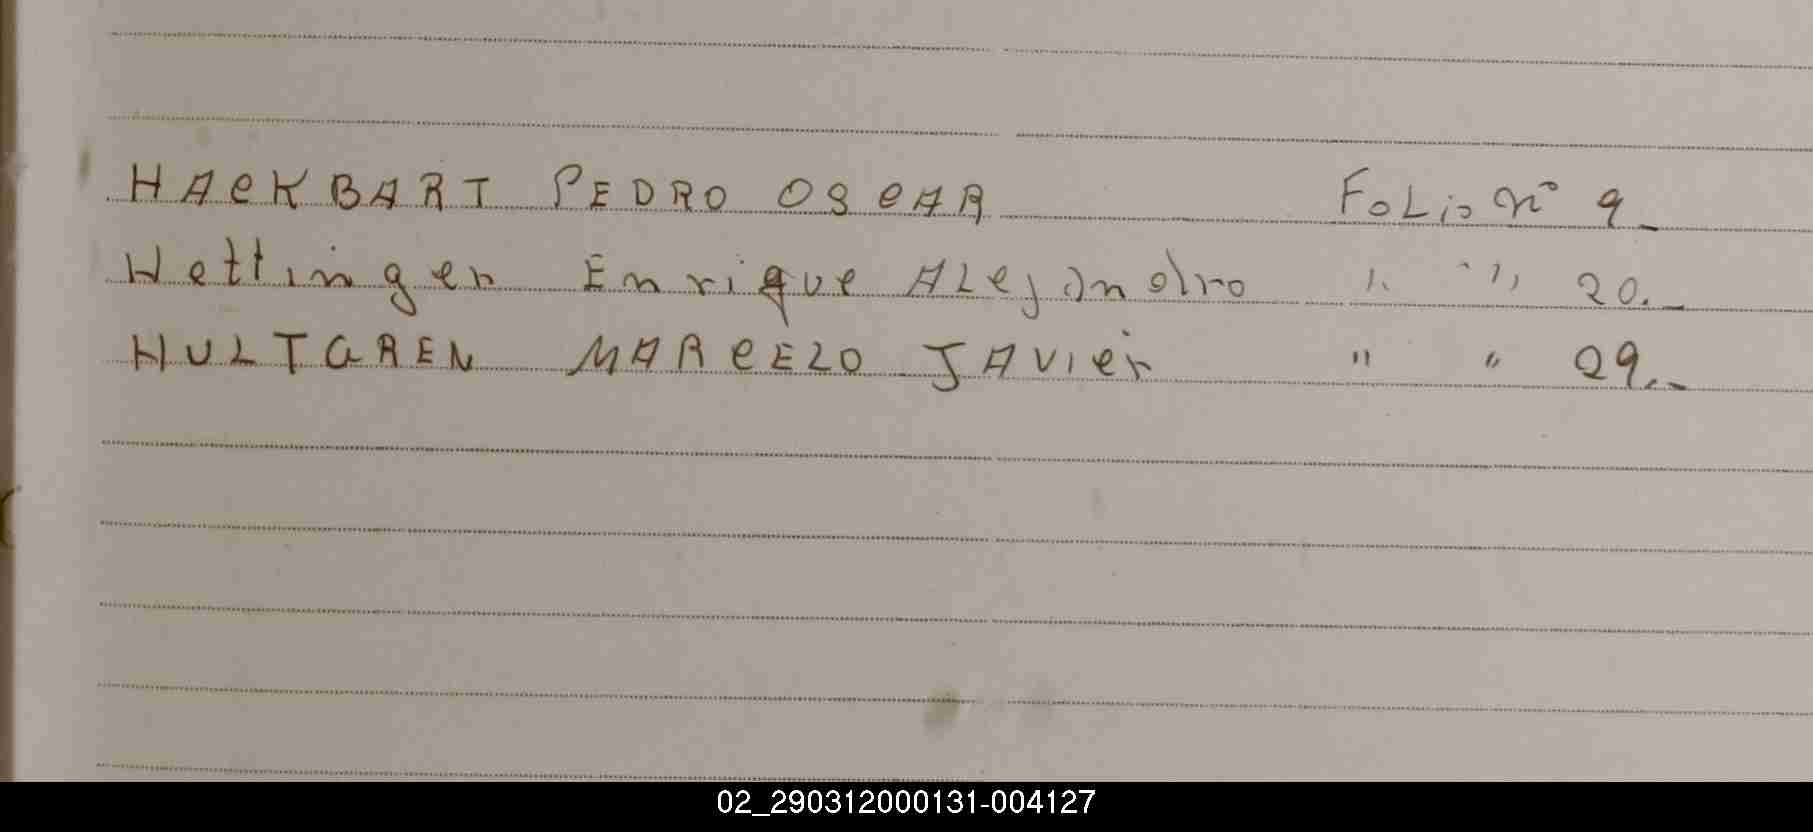 HACKBART PEDRO OSCAR FOLio Nº 9_
Hettinger Enrique ALejandro " " 20._
HULTGREN MARCELO JAVier " " 29._
02_290312000131-004127